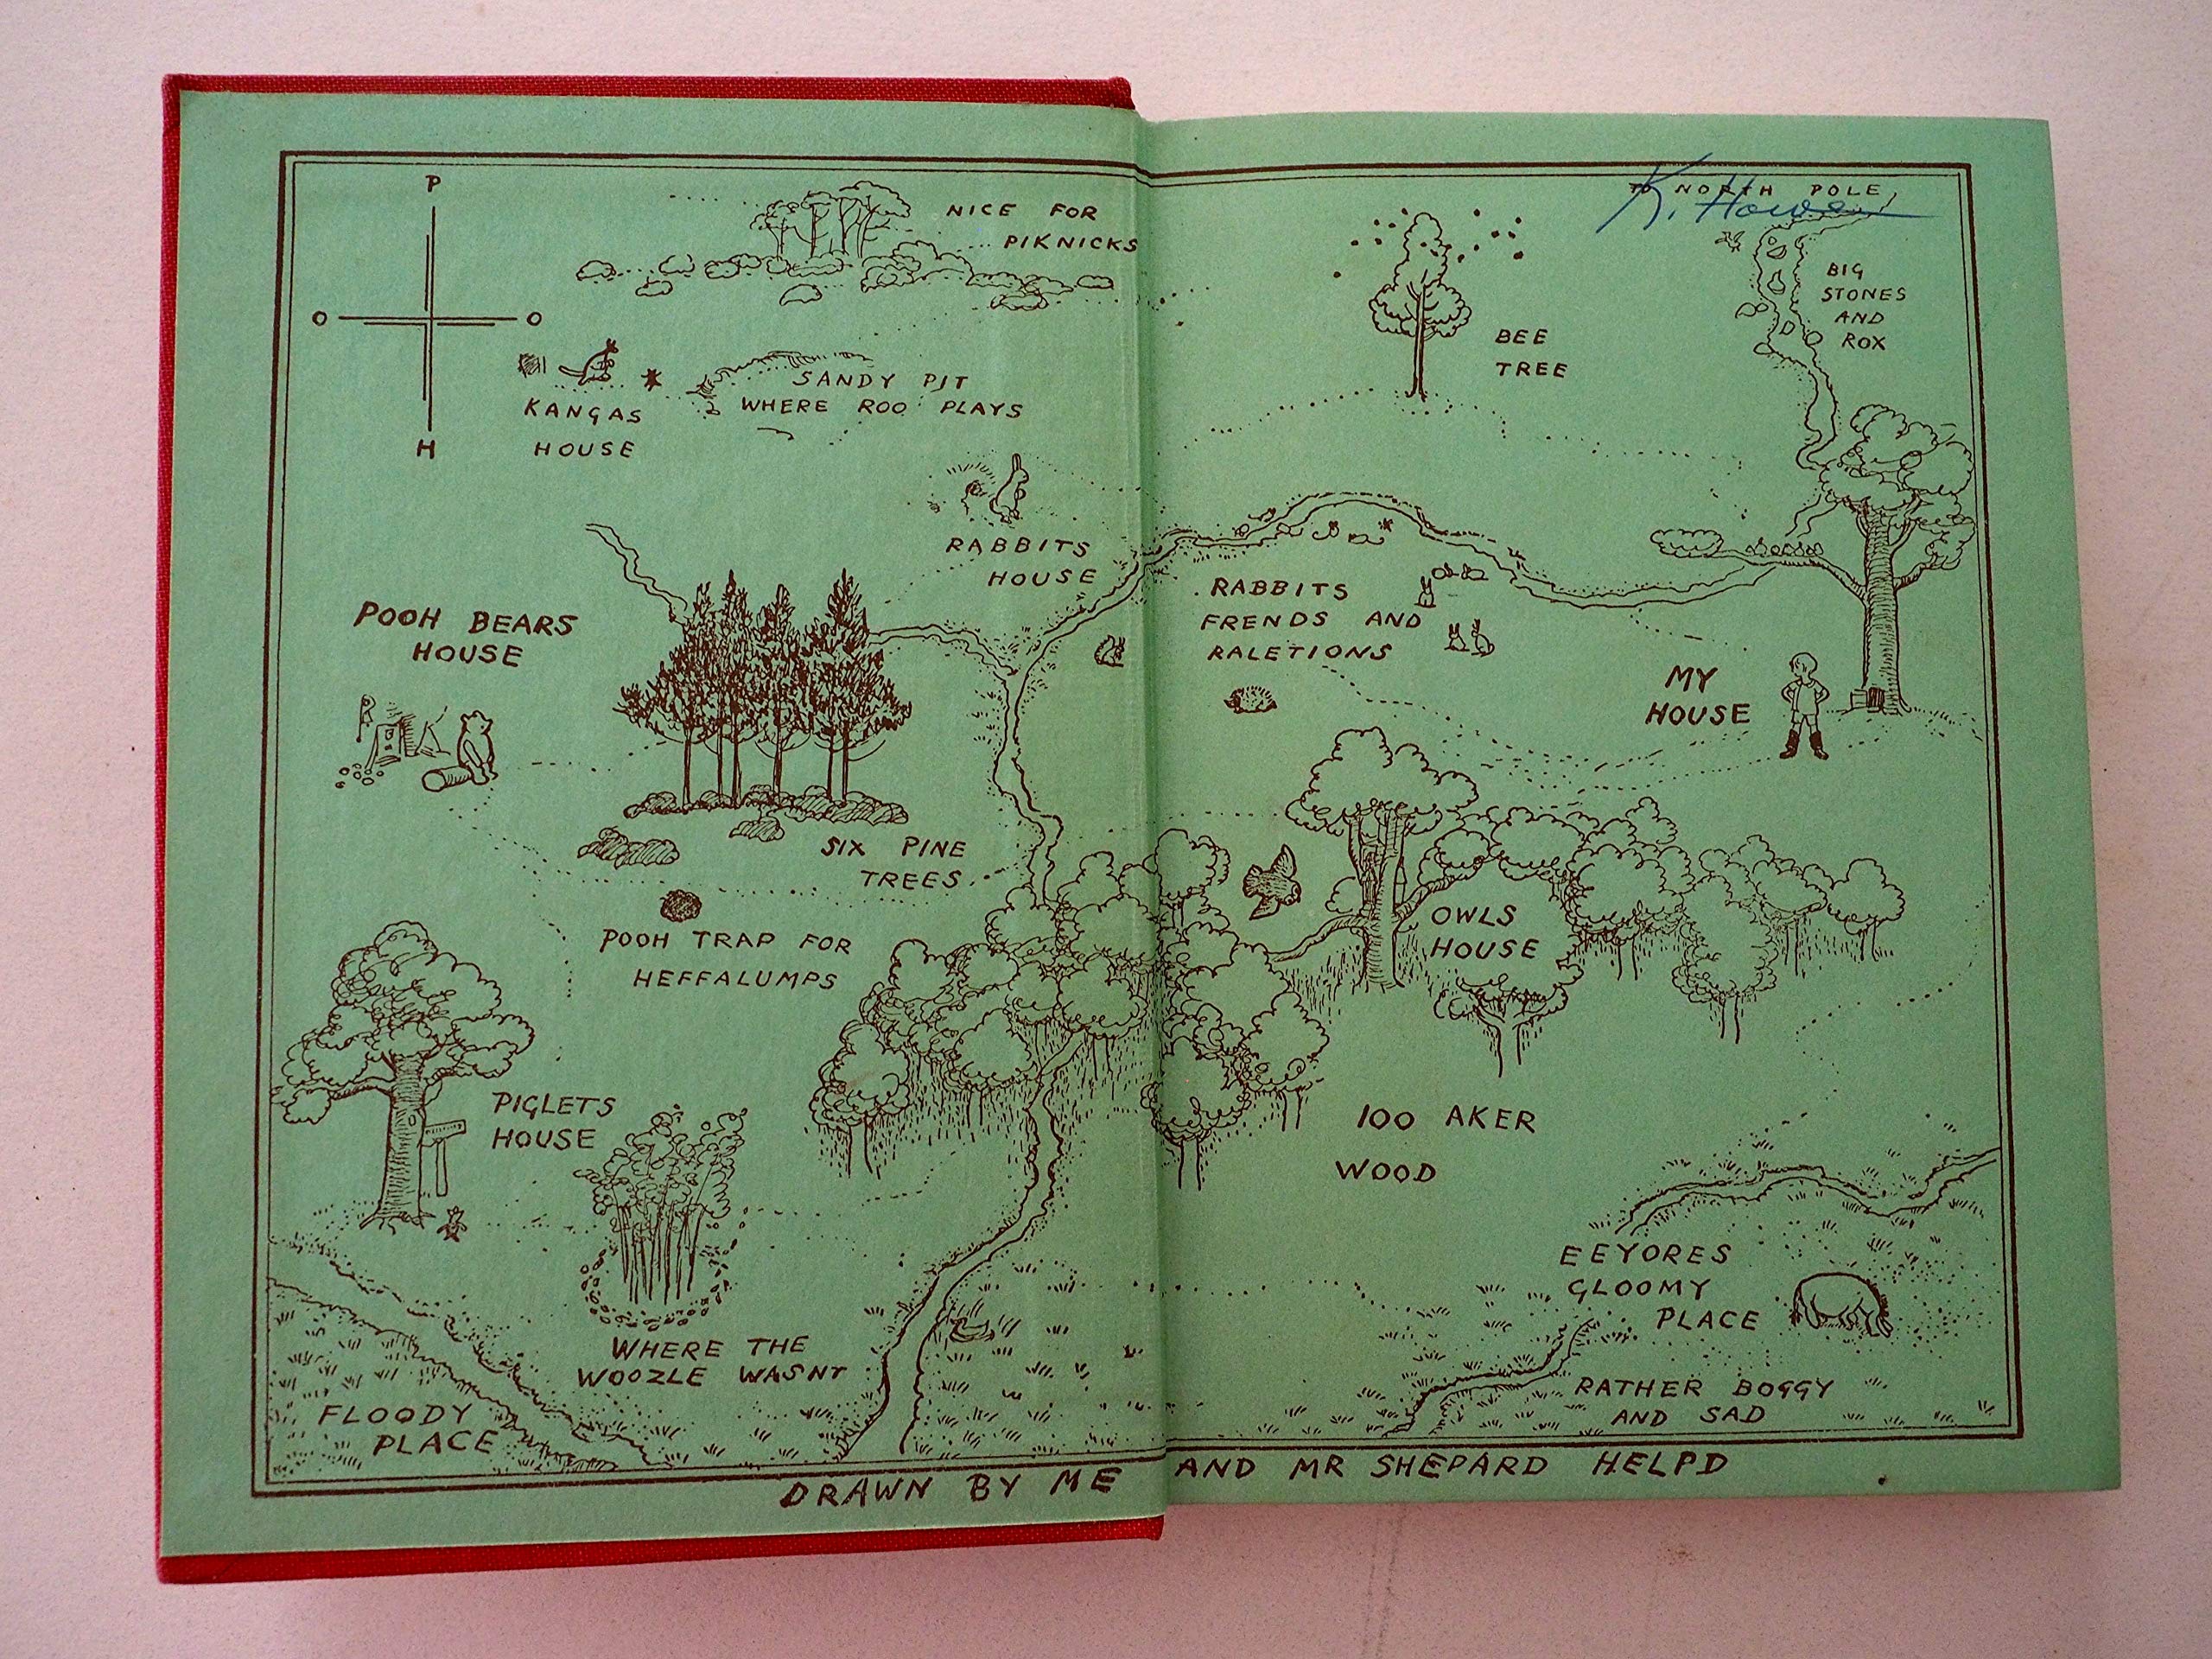 P
O O
H
NICE FOR
PIKNICKS
KANGAS
HOUSE
SANDY PIT
WHERE ROO PLAYS
RABBITS
HOUSE
POOH BEARS
HOUSE
SIX PINE
TREES
POOH TRAP FOR
HEFFALUMPS
PIGLETS
HOUSE
WHERE THE
WOOZLE WASNT
FLOODY
PLACE
TO NORTH POLE
BEE
TREE
BIG
STONES
AND
ROX
RABBITS
FRENDS AND
RALETIONS
MY
HOUSE
OWLS
HOUSE
100 AKER
WOOD
EEYORES
GLOOMY
PLACE
RATHER BOGGY
AND SAD
DRAWN BY ME AND MR SHEPARD HELPD